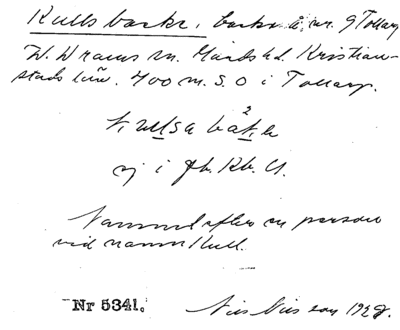 Kulls backe, backe å nr. 9 Tollarp
V. Vrams sn. Gärds hd. Kristian-
stads län. 400 m. S.O i Tollarp.
ej i Jb. Kb. U.
Namnet efter en person
vid namn Kull.
Nr 5341.
Nils Nilsson 1928.